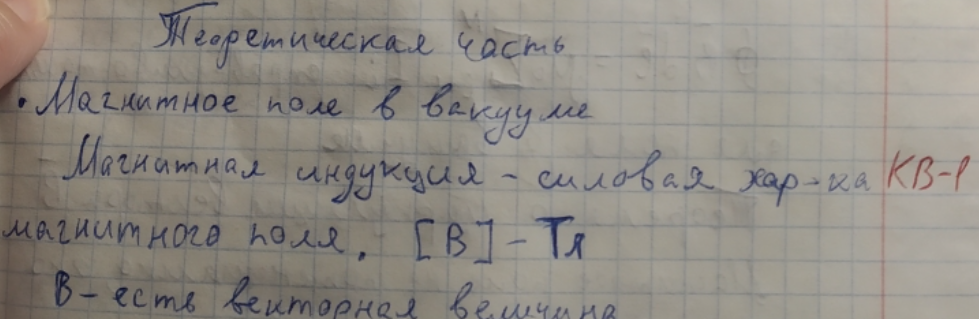 Теоретическая часть
• Магнитное поле в вакууме
Магнитная индукция - силовая хар-ка КВ-1
магнитного поля. [B] - Тл
В - есть векторная величина